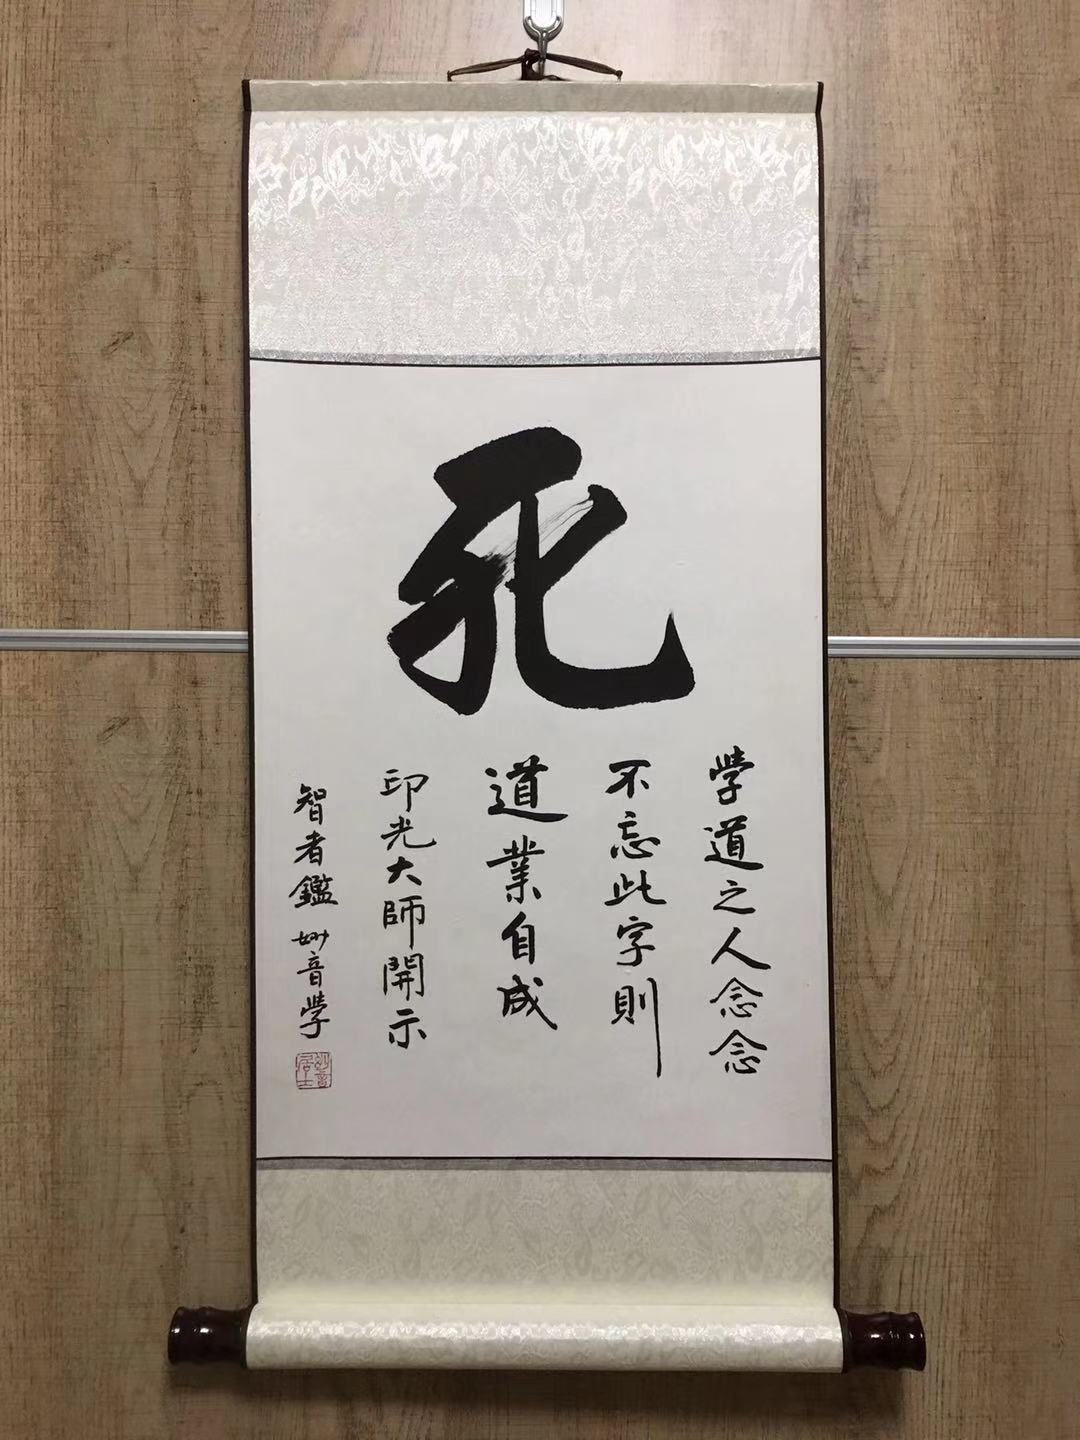 死
学道之人念念
不忘此字則
道業自成
印光大師開示
智者鑑 妙音学
妙音居士